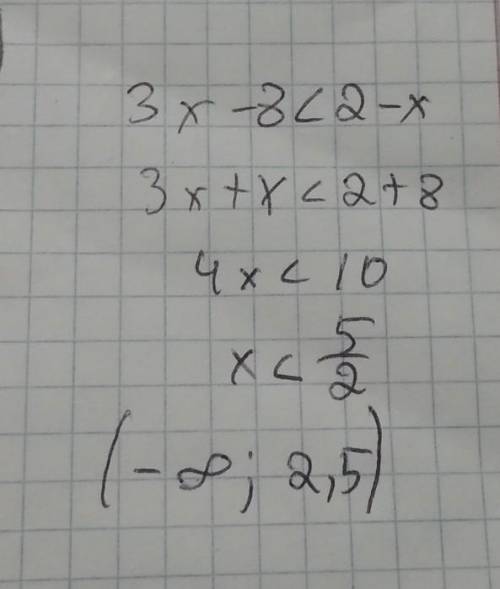 3x - 8 < 2 - x
3x + x < 2 + 8
4x < 10
x < 5/2
(-∞; 2,5)